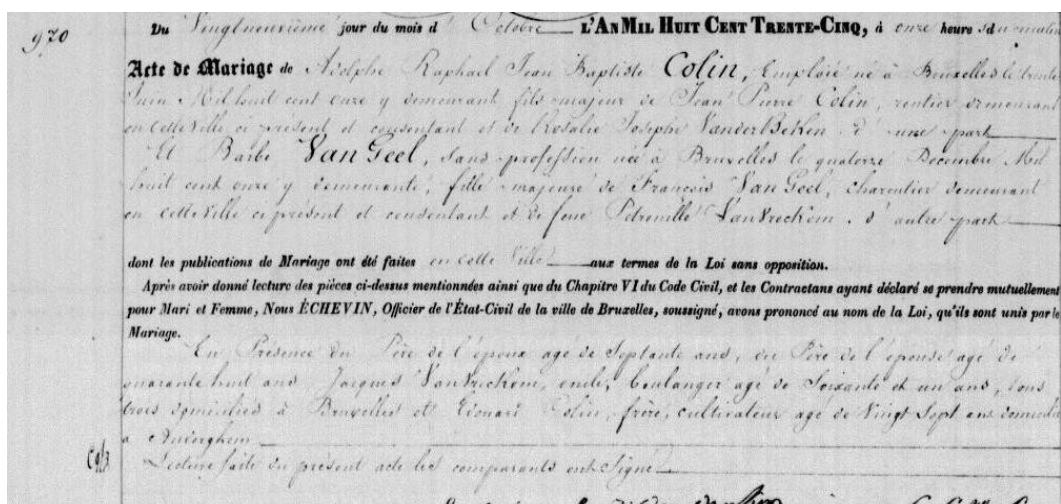 970
Du Vingtneuvième jour du mois d'Octobre L'AN MIL HUIT CENT TRENTE-CINQ, à onze heures du matin
Acte de Mariage de Adolphe Raphael Jean Baptiste Colin, Employé né à Bruxelles le trente
Juin Mil huit cent onze y demeurant fils majeur de Jean Pierre Colin, rentier demeurant
en cette Ville ci présent et consentant et de Rosalie Josephe VanderBeken d'une part
Et Barbe Van Geel, sans profession née à Bruxelles le quatorze Decembre Mil
huit cent onze y demeurante, fille majeure de François Van Geel, charentier demeurant
en cette Ville ci présent et consentant et de feue Petronille Vanvreckem. d'autre part
dont les publications de Mariage ont été faites en cette Ville aux termes de la Loi sans opposition.
Après avoir donné lecture des pièces ci-dessus mentionnées ainsi que du Chapitre VI du Code Civil, et les Contractans ayant déclaré se prendre mutuellement
pour Mari et Femme, Nous ÉCHEVIN, Officier de l'État-Civil de la ville de Bruxelles, soussigné, avons prononcé au nom de la Loi, qu'ils sont unis par le
Mariage.
En Présence du Père de l'époux agé de Septante ans, du Père de l'épouse agé de
quarante huit ans Jacques Vanvreckem, oncle, boulanger agé de Soixante et un ans, tous
trois domiciliés à Bruxelles et Edouard Colin, frère, cultivateur agé de Vingt Sept ans domicilié
a
Lecture faite du présent acte les comparants ont Signé